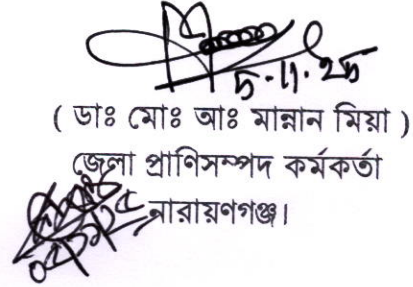 5-11-25
( ডাঃ মোঃ আঃ মান্নান মিয়া )
জেলা প্রাণিসম্পদ কর্মকর্তা
নারায়ণগঞ্জ।